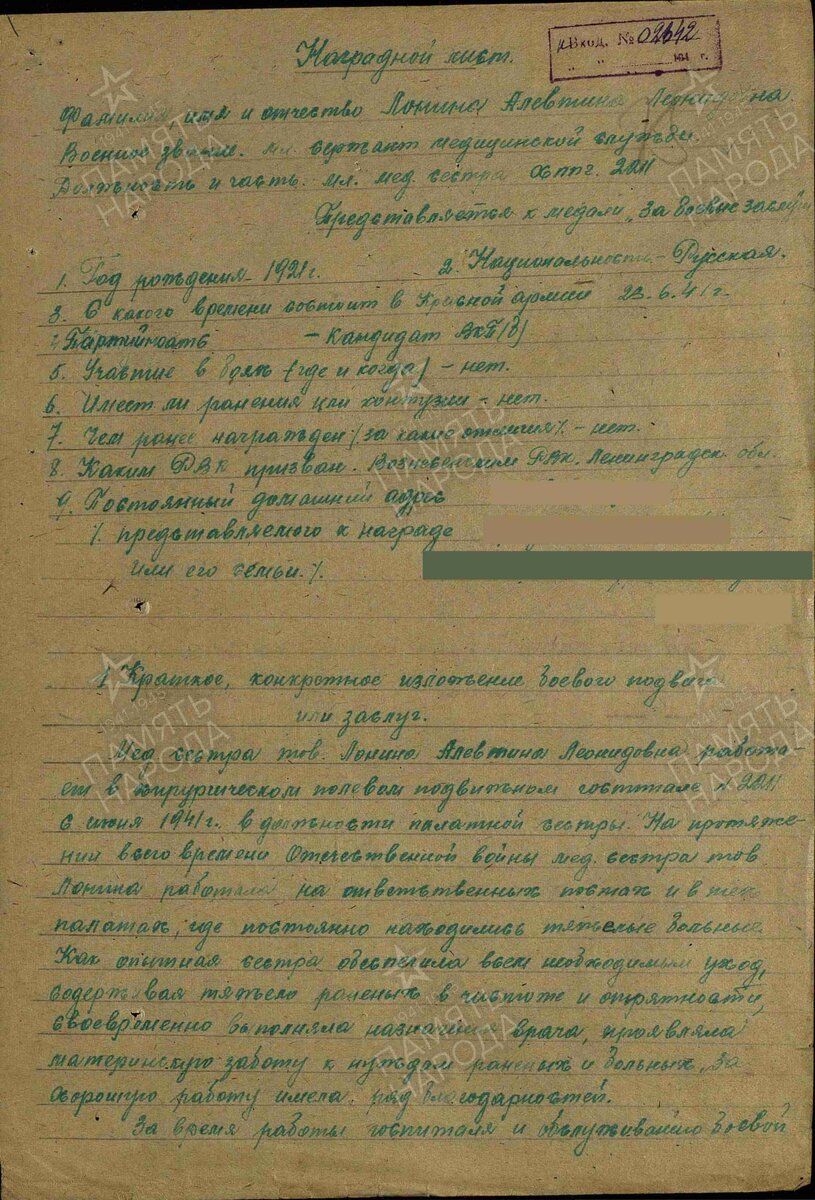 Вход. № 02642
" " 194 г.
Наградной лист.
Фамилия, имя и отчество Лонина Алевтина Леонидовна.
Военное звание. мл. сержант медицинской службы
Должность и часть. мл. мед. сестра хппг. 2011
Представляется к медали "За боевые заслуги
1. Год рождения - 1921 г. 2. Национальность - Русская.
3. С какого времени состоит в Красной армии 23.6.41 г.
4 Партийность - Кандидат ВКП(б)
5. Участие в боях (где и когда) - нет.
6. Имеет ли ранения или контузии - нет.
7. Чем ранее награжден /за какие отличия/. - нет.
8. Каким РВК призван. Вознесенским РВК. Ленинградск. обл.
9. Постоянный домашний адрес
/. представляемого к награде
или его семьи. /.
1 Краткое, конкретное изложение боевого подвига
или заслуг.
Мед. сестра тов. Лонина Алевтина Леонидовна работа-
ет в хирургическом полевом подвижном госпитале № 2011
с июня 1941 г. в должности палатной сестры. На протяже-
нии всего времени Отечественной войны мед. сестра тов
Лонина работала на ответственных постах и в тех
палатах, где постоянно находились тяжелые больные.
Как опытная сестра обеспечила всем необходимым уход,
содерживая тяжело раненых в чистоте и опрятности,
своевременно выполняла назначения врача, проявляла
материнскую заботу к нуждам раненых и больных. За
хорошую работу имела ряд благодарностей.
За время работы госпиталя и обслуживанию боевой
ПАМЯТЬ НАРОДА
1941-1945